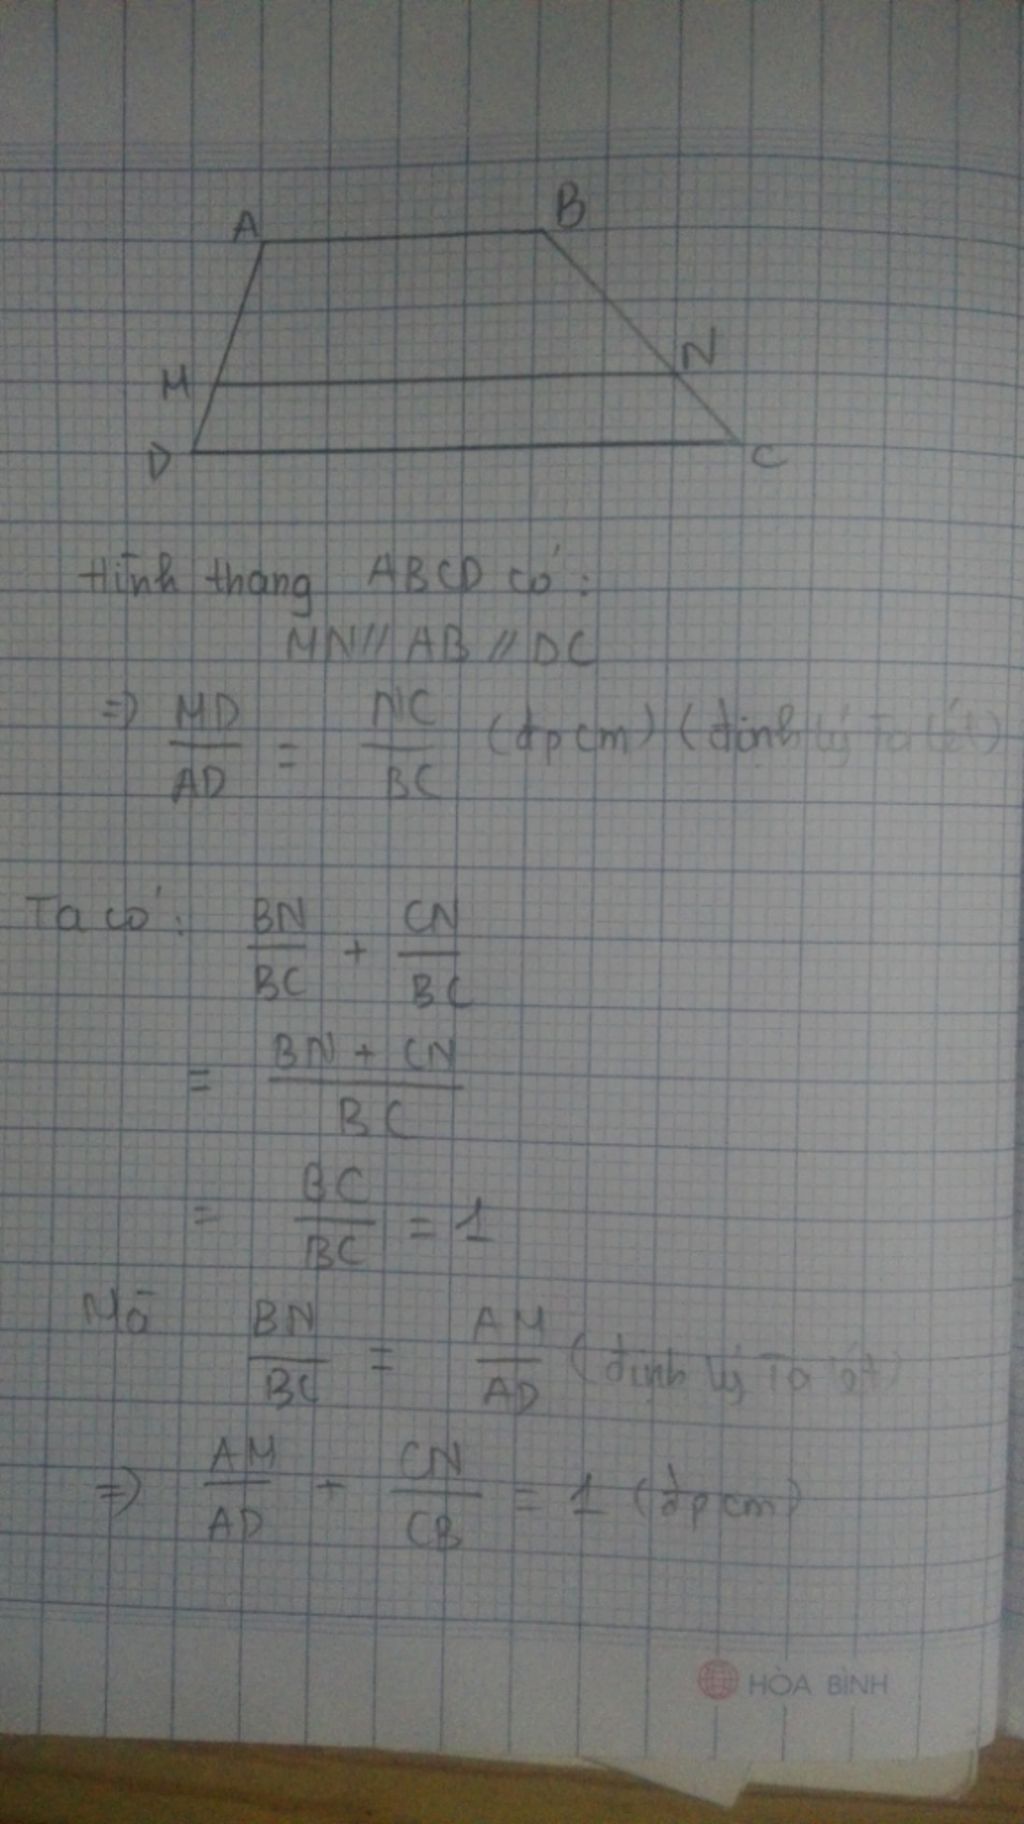 A B
M N
D C
Hình thang ABCD có:
MN // AB // DC
=> MD/AD = NC/BC (đpcm) (định lý Ta lét)
Ta có: BN/BC + CN/BC
= BN + CN / BC
= BC/BC = 1
Mà BN/BC = AM/AD (định lý Ta lét)
=> AM/AD + CN/CB = 1 (đpcm)
HÒA BÌNH